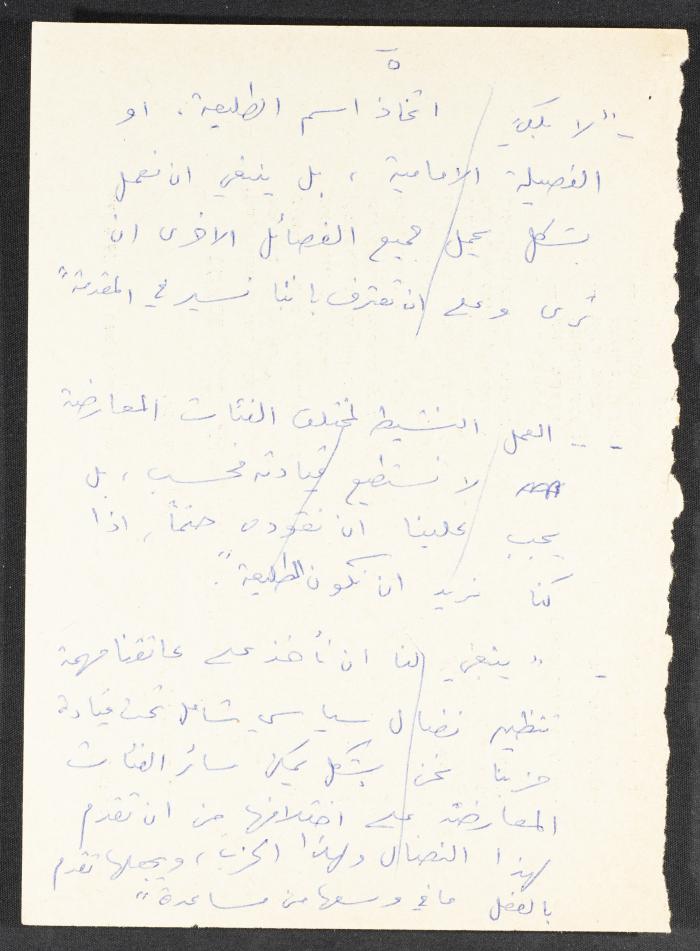 ٥
- "لا يكفي اتخاذ اسم الطليعة، او
الفصيلة الامامية، بل ينبغي ان نعمل
بشكل يحمل جميع الفصائل الاخرى ان
ترى وعلى ان تعترف باننا نسير في المقدمة"
- - العمل النشيط لمختلف الفئات المعارضة
لا نستطيع قيادته فحسب، بل
يجب علينا ان نقوده حتماً، اذا
كنا نريد ان نكون الطليعة".
- "ينبغي لنا ان نأخذ على عاتقنا مهمة
تنظيم نضال سياسي شامل تحت قيادة
حزبنا نحن بشكل يمكن سائر الفئات
المعارضة على اختلافها من ان تقدم
لهذا النضال ولهذا الحزب، ويجعلها تقدم
بالفعل ما في وسعها من مساعدة"